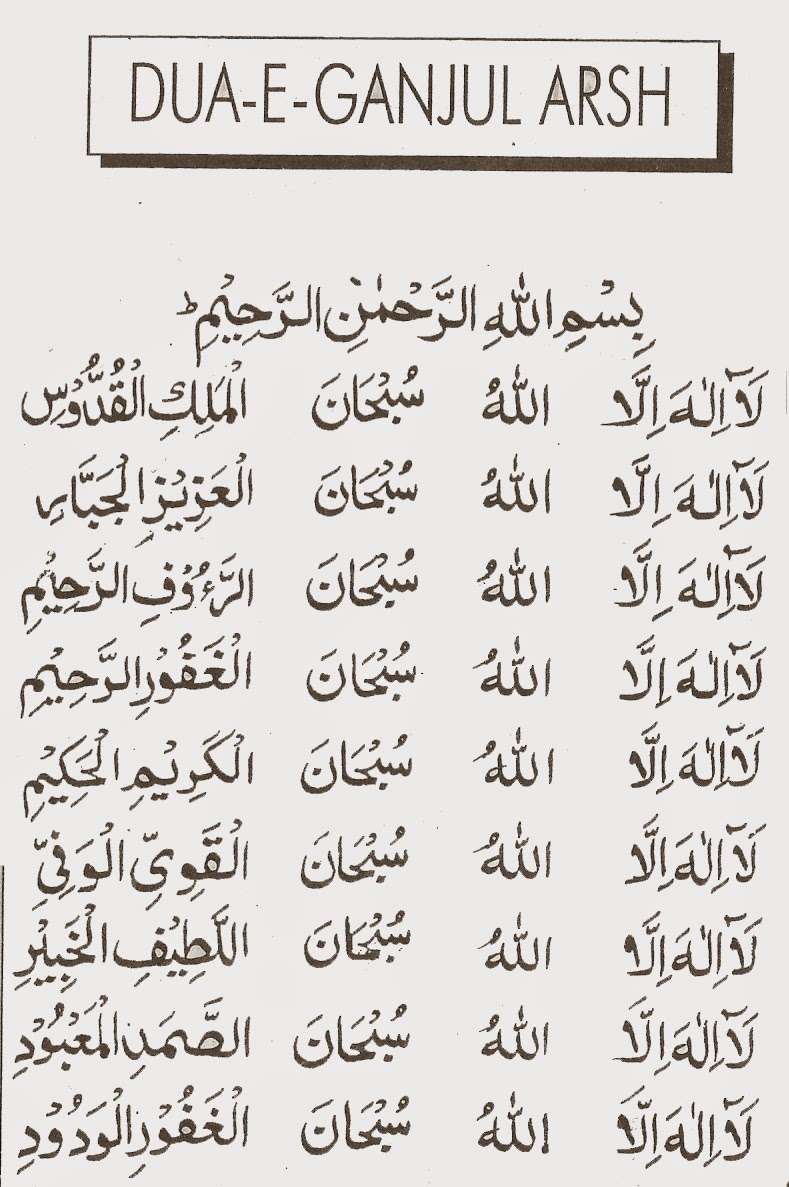 DUA-E-GANJUL ARSH
بِسْمِ اللهِ الرَّحْمٰنِ الرَّحِيْمِ ط
لَآ اِلٰهَ اِلَّا اللهُ سُبْحَانَ الْمَلِكِ الْقُدُّوْسِ
لَآ اِلٰهَ اِلَّا اللهُ سُبْحَانَ الْعَزِيْزِ الْجَبَّارِ
لَآ اِلٰهَ اِلَّا اللهُ سُبْحَانَ الرَّءُوْفِ الرَّحِيْمِ
لَآ اِلٰهَ اِلَّا اللهُ سُبْحَانَ الْغَفُوْرِ الرَّحِيْمِ
لَآ اِلٰهَ اِلَّا اللهُ سُبْحَانَ الْكَرِيْمِ الْحَكِيْمِ
لَآ اِلٰهَ اِلَّا اللهُ سُبْحَانَ الْقَوِيِّ الْوَفِيِّ
لَآ اِلٰهَ اِلَّا اللهُ سُبْحَانَ اللَّطِيْفِ الْخَبِيْرِ
لَآ اِلٰهَ اِلَّا اللهُ سُبْحَانَ الصَّمَدِ الْمَعْبُوْدِ
لَآ اِلٰهَ اِلَّا اللهُ سُبْحَانَ الْغَفُوْرِ الْوَدُوْدِ